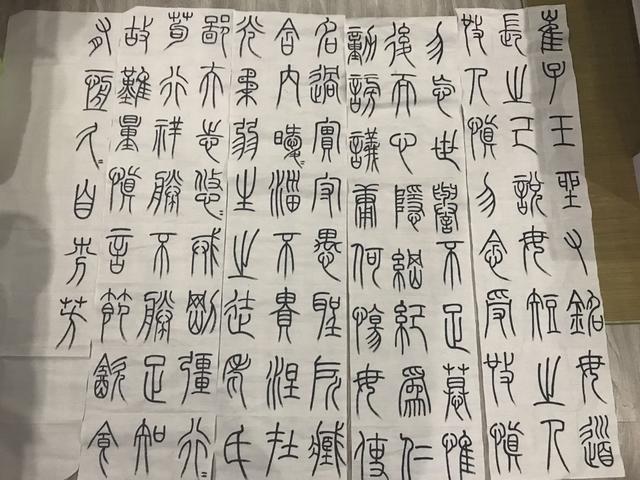 崔子玉座右銘毋道
人之短毋說己之長
施人慎勿念受施慎
勿忘世譽不足慕惟
仁爲紀綱隱心而後
動謗議庸何傷毋使
名過實守愚聖所臧
在涅貴不緇曖〻內含
光柔弱生之徒老氏
鄙夫志悠〻戒剛彊行〻
故難量慎言節飲食
知足勝不勝祥行苟
有恆久〻自芬芳